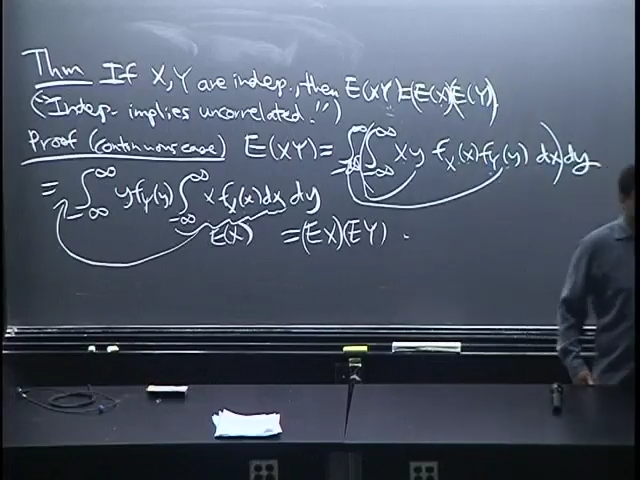 Thm If X,Y are indep., then E(XY)=(E(X)(E(Y)
("Indep. implies uncorrelated.")
Proof (continuous case) E(XY) = ∫_{-∞}^{∞} (∫_{-∞}^{∞} xy f_X(x) f_Y(y) dx) dy
= ∫_{-∞}^{∞} y f_Y(y) ∫_{-∞}^{∞} x f_X(x) dx dy
E(X) = (EX)(EY) .